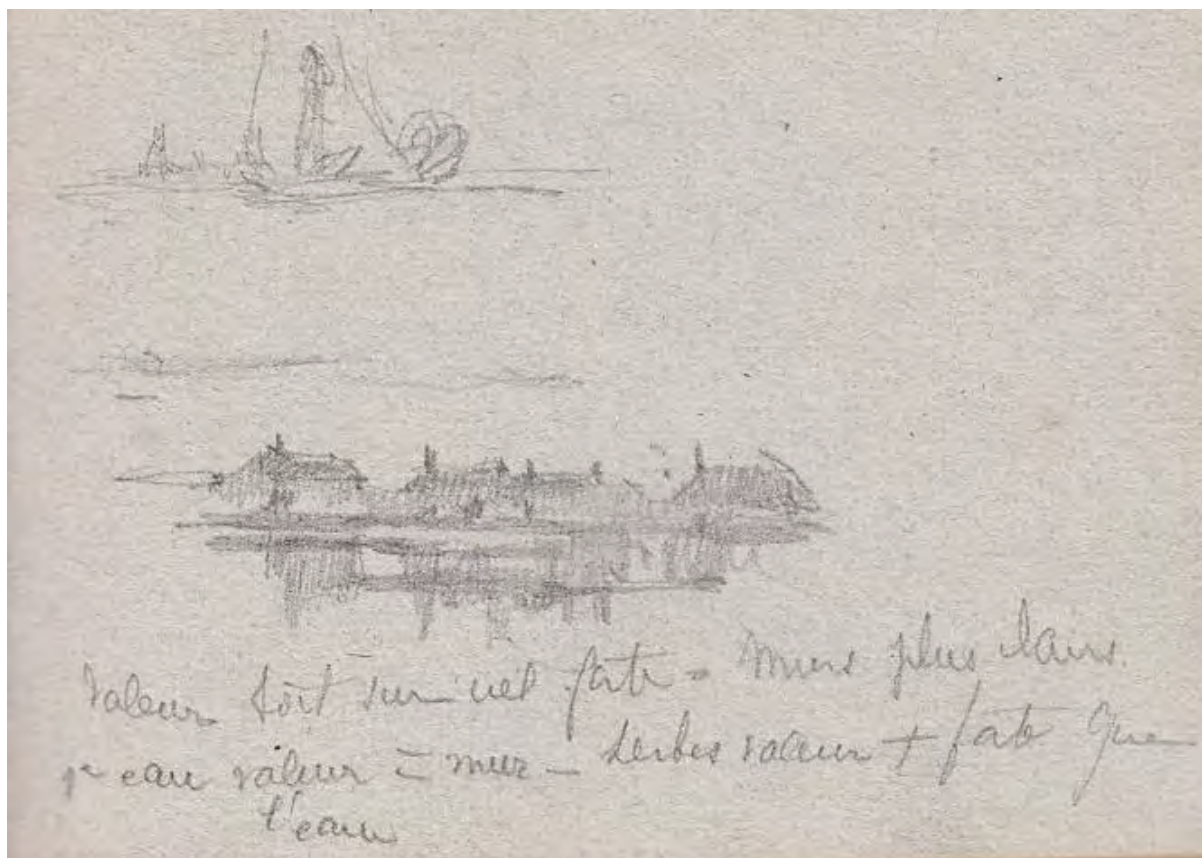 Valeur toit sur ciel forte = Murs plus clairs.
eau valeur = mur – herbes valeur + forte que
l'eau